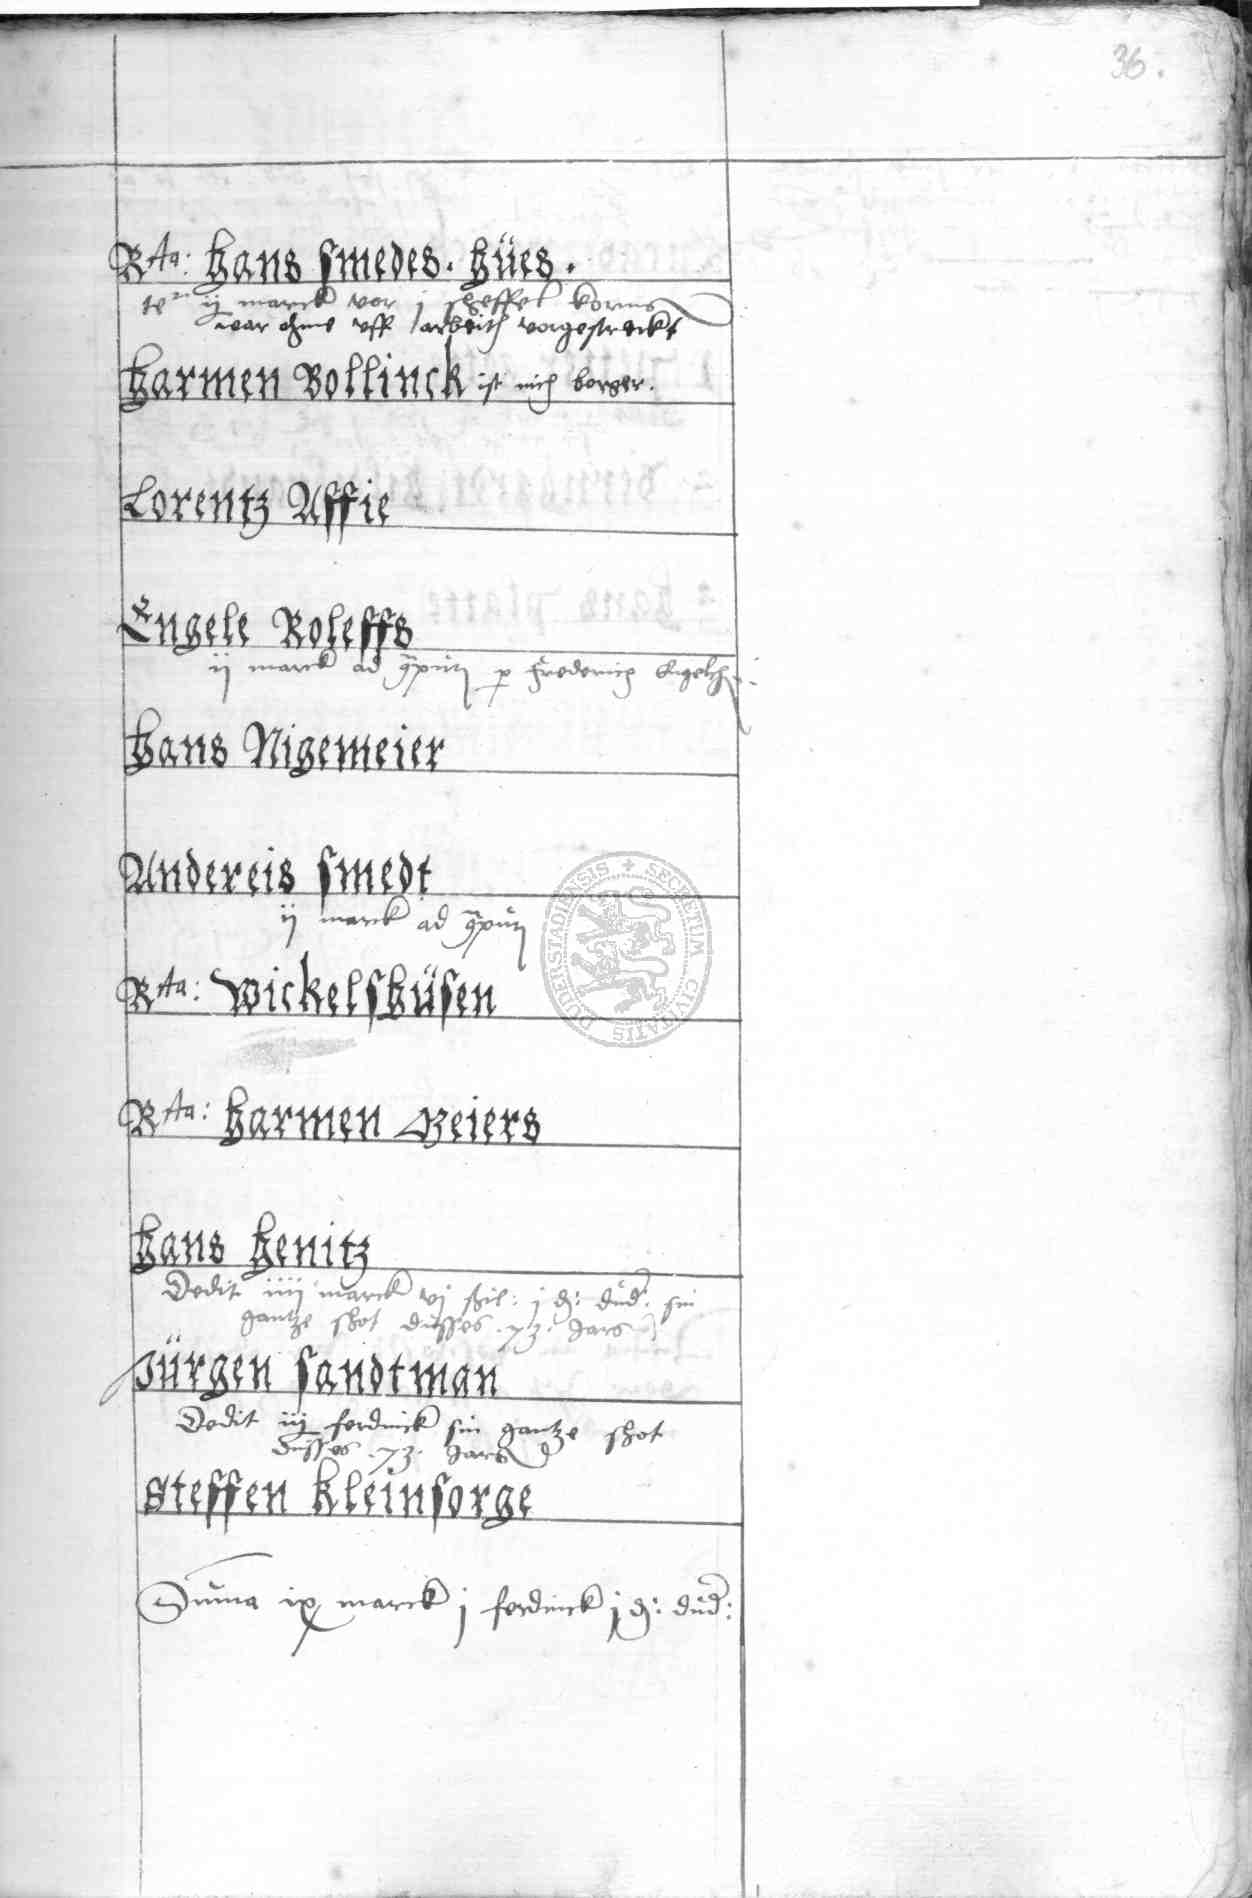 36.
Rta: Hans Smedes. Hües.
te ij marck vor j scheffel korns
war ohme uff arbeith vorgestreckt
Harmen Bollinck ist nich borger.
Lorentz Affie
Engele Roleffs
ij marck ad per Frederich
Hans Nigemeier
Andereis Smedt
ij marck ad
Rta: Wickelshüsen
Rta: Harmen Beiers
Hans Henitz
Dedit iiij marck vj ßil: j d: dud: sin
gantze shot dusses .73. Jars
Jürgen Sandtman
Dedit iij ferdinck sin gantze shot
dusses .73. Jars
Steffen Kleinsorge
Suma ix marck j ferdinck j d: dud:
SECRETUM CIVITATIS DUDERSTADIENSIS